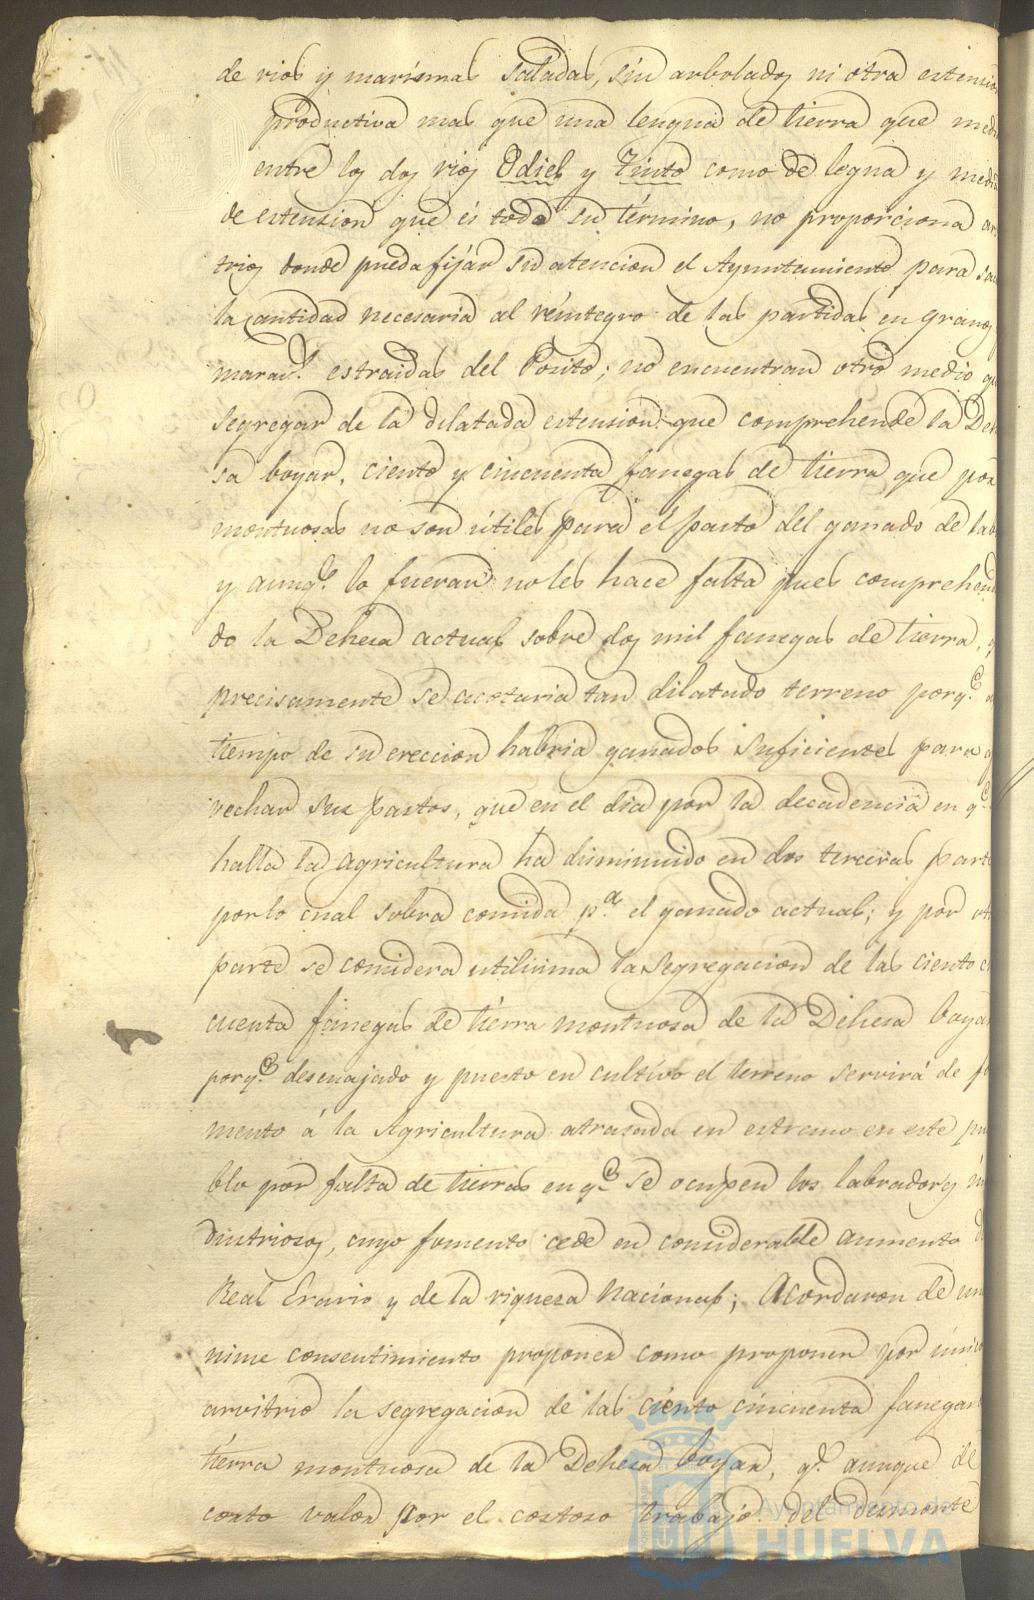 de rios y marismas saladas, sin arbolados ni otra estension
productiva mas que una lengua de tierra que medi
entre los dos rios Odiel y Tinto como de legua y media
de estension que és toda su término, no proporciona ar
trios donde pueda fijár su atencion el Ayuntamiento para sac
la cantidad necesaria al réintegro de las partidas en granos
marav.s estraidas del Posito; no encuentran otro medio qu
segregar de la dilatada estension que comprehende la Dehe
sa boyar, ciento y cincuenta fanegas de tierra que por
montuosas no son útiles para el pasto del ganado de lab
y aunq.e lo fueran no les hace falta pues comprehend
do la Dehesa actual sobre dos mil fanegas de tierra, q
precisamente se acotaria tan dilatado terreno porq.e a
tiempo de su ereccion habria ganados suficientes para a
vechar sus pastos, que en el dia por la decadencia en q.e
halla la agricultura ha disminuido en dos terceras parte
por lo cual sobra comida p.a el ganado actual; y por ot
parte se considera utilisima la segregacion de las ciento ci
cuenta fanegas de tierra montuosa de la Dehesa boyar
porq.e descuajado y puesto en cultivo el terreno servirá de fo
mento á la Agricultura atrasada en estremo en este pu
blo por falta de tierras en q.e se ocupen los labradores in
dustriosos, cuyo fomento cede en considerable aumento d
Real Erario y de la riqueza nacional; Acordaron de una
nime consentimiento proponer como proponen por único
arvitrio la segregacion de las ciento cincuenta fanegas
tierra montuosa de la Dehesa boyar, q.e aunque de
corto valor por el costoso trabajo del desmonte
Ayuntamiento de
HUELVA